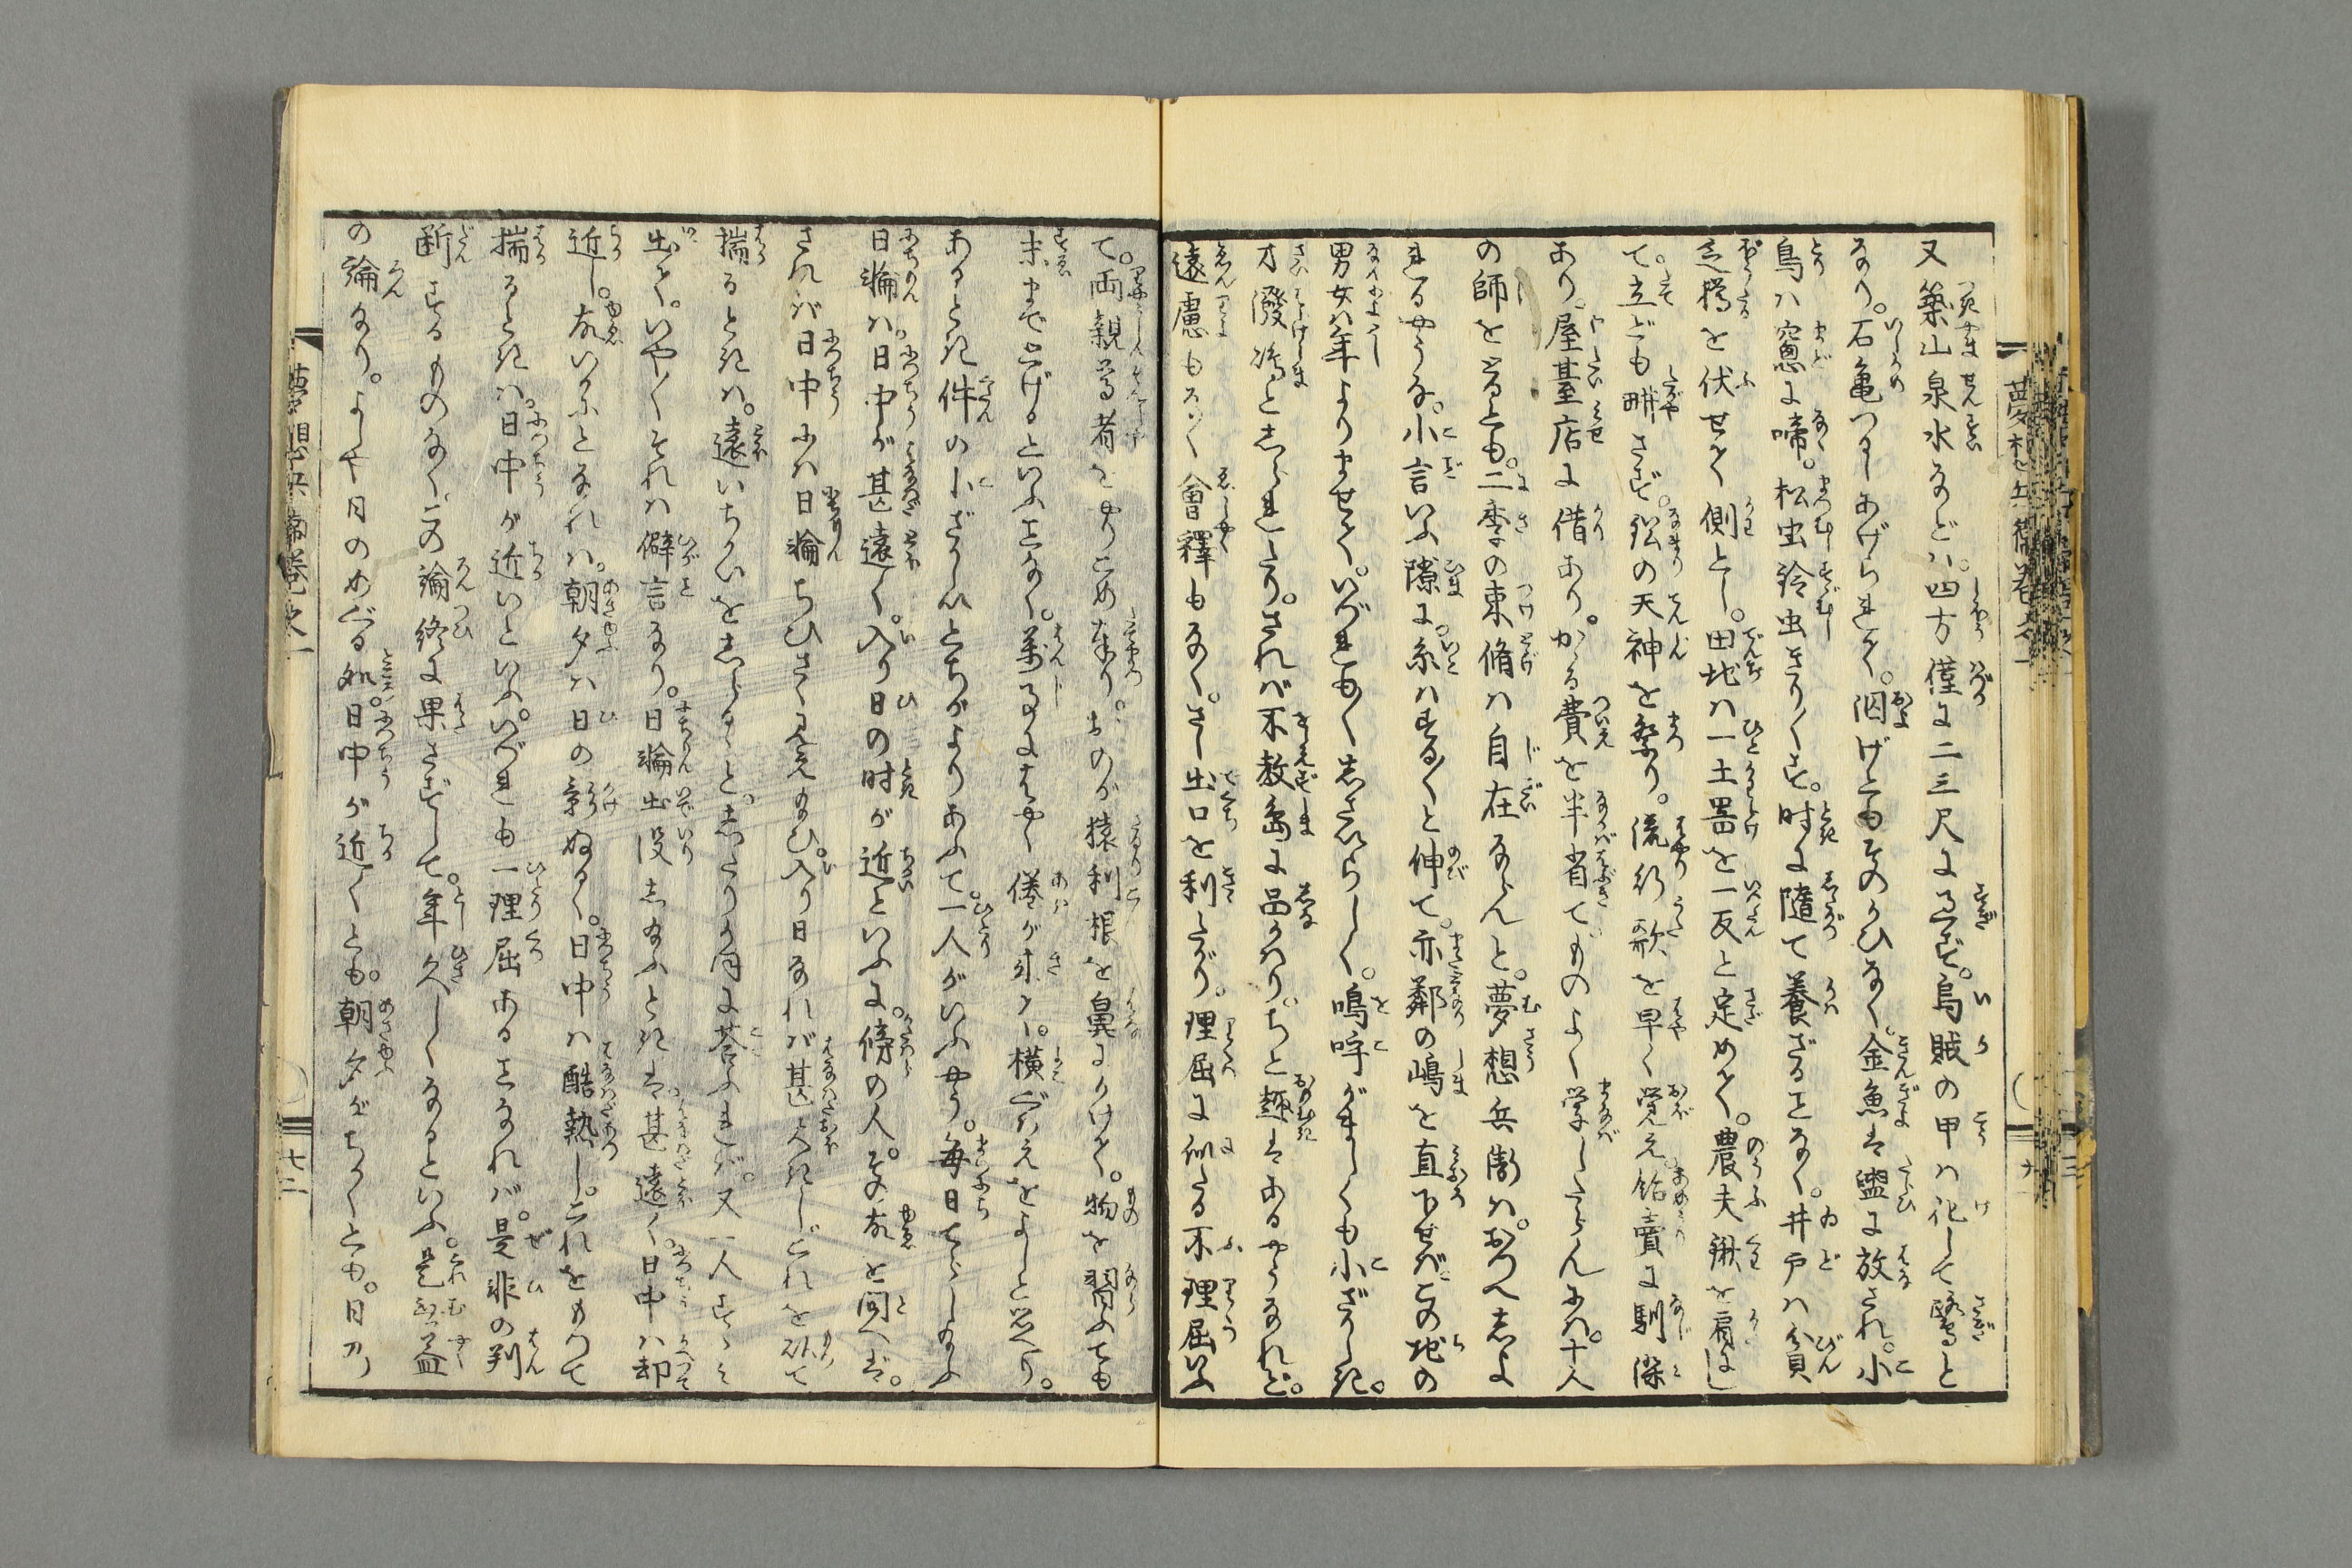 又築山泉水などハ。四方僅に二三尺に過ず。烏賊の甲ハ化して鷺と
なり。石亀つるしあげられて。泅げどもそのかひなく。金魚は盥に放され。小
鳥ハ窓に啼。松虫鈴虫きり〳〵す。時に随て養ざることなく。井戸ハ貧
乏樽を伏せて側とし。田地ハ一土器を一反と定めて。農夫鍬を肩にし
て立ども耕さず。鉛の天神を祭り。流行歌を早く覚え。飴賣に馴染
あり。屋臺店に借あり。かゝる費を半省て。ものよく学したらんにハ。十人
の師をとるとも。二季の束脩ハ自在ならんと。夢想兵衛ハおつへしよ
れるやうな。小言いふ隙に。糸ハする〳〵と伸て。亦鄰の嶋を直下せば。この地の
男女ハ年よりませて。いづれもみくしさいらしく。鳴呼がましくも小ざかしき。
才潑嶋としられたり。されバ不教島に品かハり。ちと趣はあるやうなれど。
遠慮もなく會釋もなく。さし出口を利たがり。理屈に似たる不理屈いふ
て。両親尊者をやりこめ奉り。おのが猿利根を鼻にかけて。物を習ふても
末まで上げるといふことなく。萬事にはやく倦が来り。横に見えをよしと思へり。
あるとき件の小ざかしいとちがよりあふて。一人がいふやう。毎日てらし給ふ
日輪ハ。日中が甚遠く。入り日の时が近いといふに。傍の人。その故を問へば。
されバ日中にハ日輪ちひさく見え給ひ。入り日なれバ甚大きし。これを以て
揣るときハ。遠いちかいをしらるゝと。したりかほに荅ふれバ。又一人すゝみ
出て。いや〳〵それハ僻言なり。日輪出没し給ふときは。甚遠く。日中ハ却
近し。故いかにとなれハ。朝夕ハ日の影ぬるく。日中ハ酷熱し。これをもつて
揣るときハ。日中が近いといふ。いづれも一理屈あることなれバ。是非の判
断するものなく。この論終に果さずして。年久しくなるといふ。是無益
の論なり。よしや日のめぐる処。日中が近くとも。朝夕がちかくとも。日月
夢想兵衛巻之一